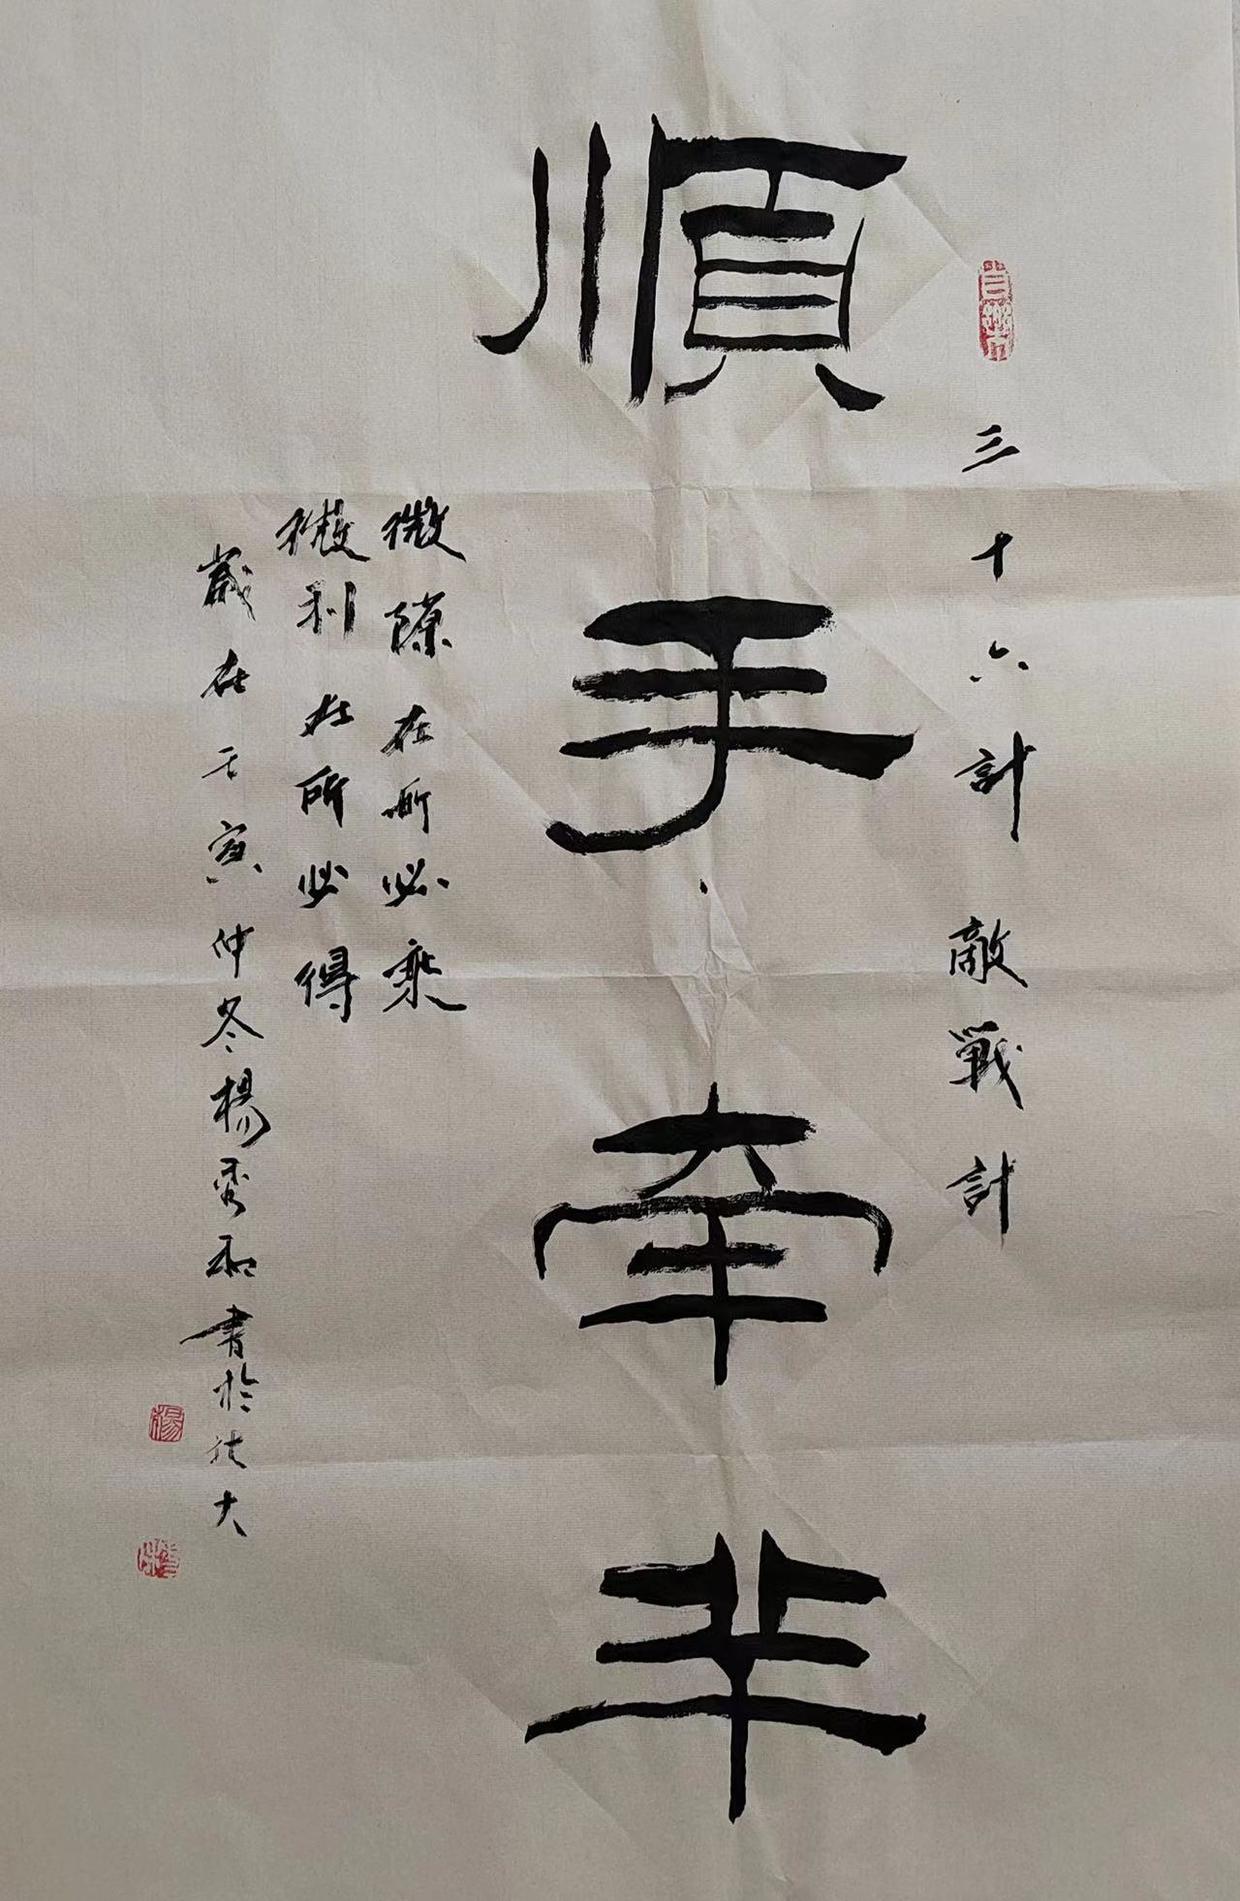 三十六計 敵戰計
順手牽羊
微隙在所必乘
微利在所必得
歲在壬寅仲冬楊秀和書於技大
楊